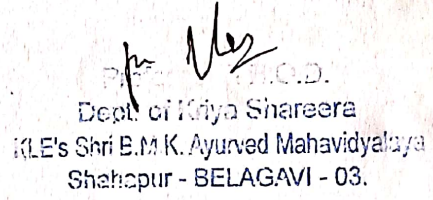 H.O.D.
Dept. of Kriya Shareera
KLE's Shri B.M.K. Ayurved Mahavidyalaya
Shahapur - BELAGAVI - 03.